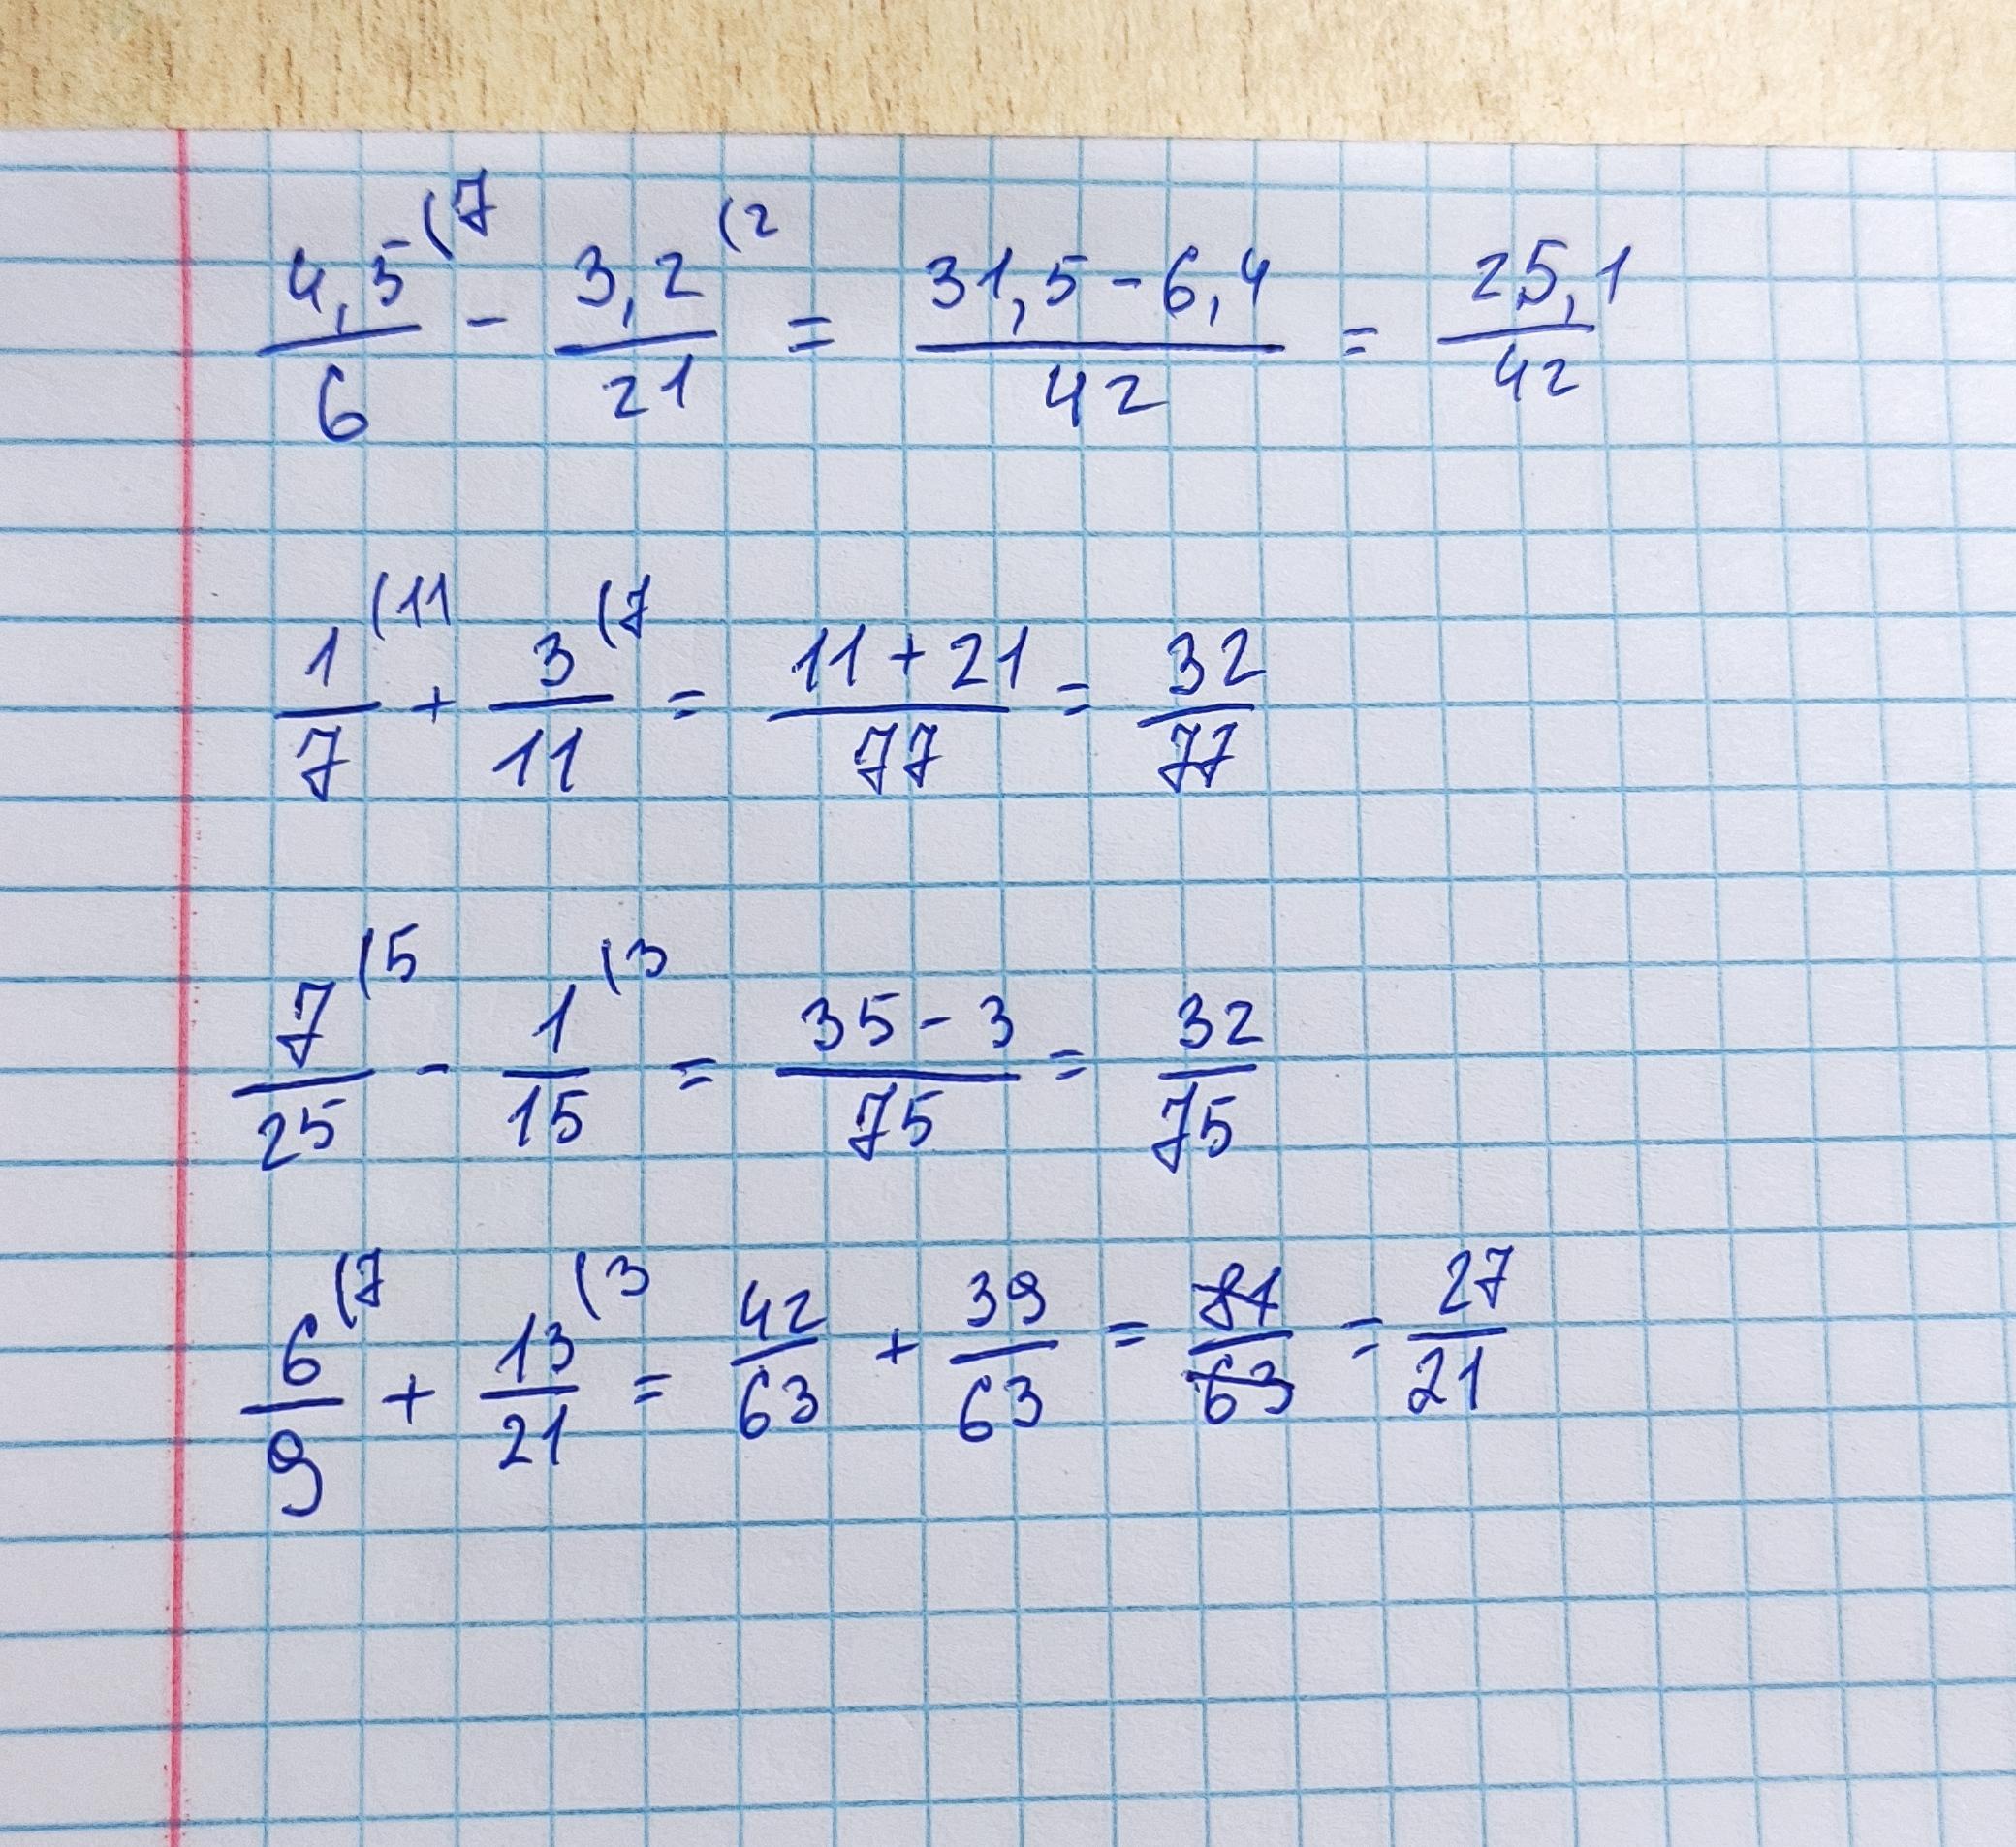 4,5/6 (7 - 3,2/21 (2 = 31,5-6,4/42 = 25,1/42
1/7 (11 + 3/11 (7 = 11+21/77 = 32/77
7/25 (5 - 1/15 (3 = 35-3/75 = 32/75
6/9 (7 + 13/21 (3 = 42/63 + 39/63 = 81/63 = 27/21